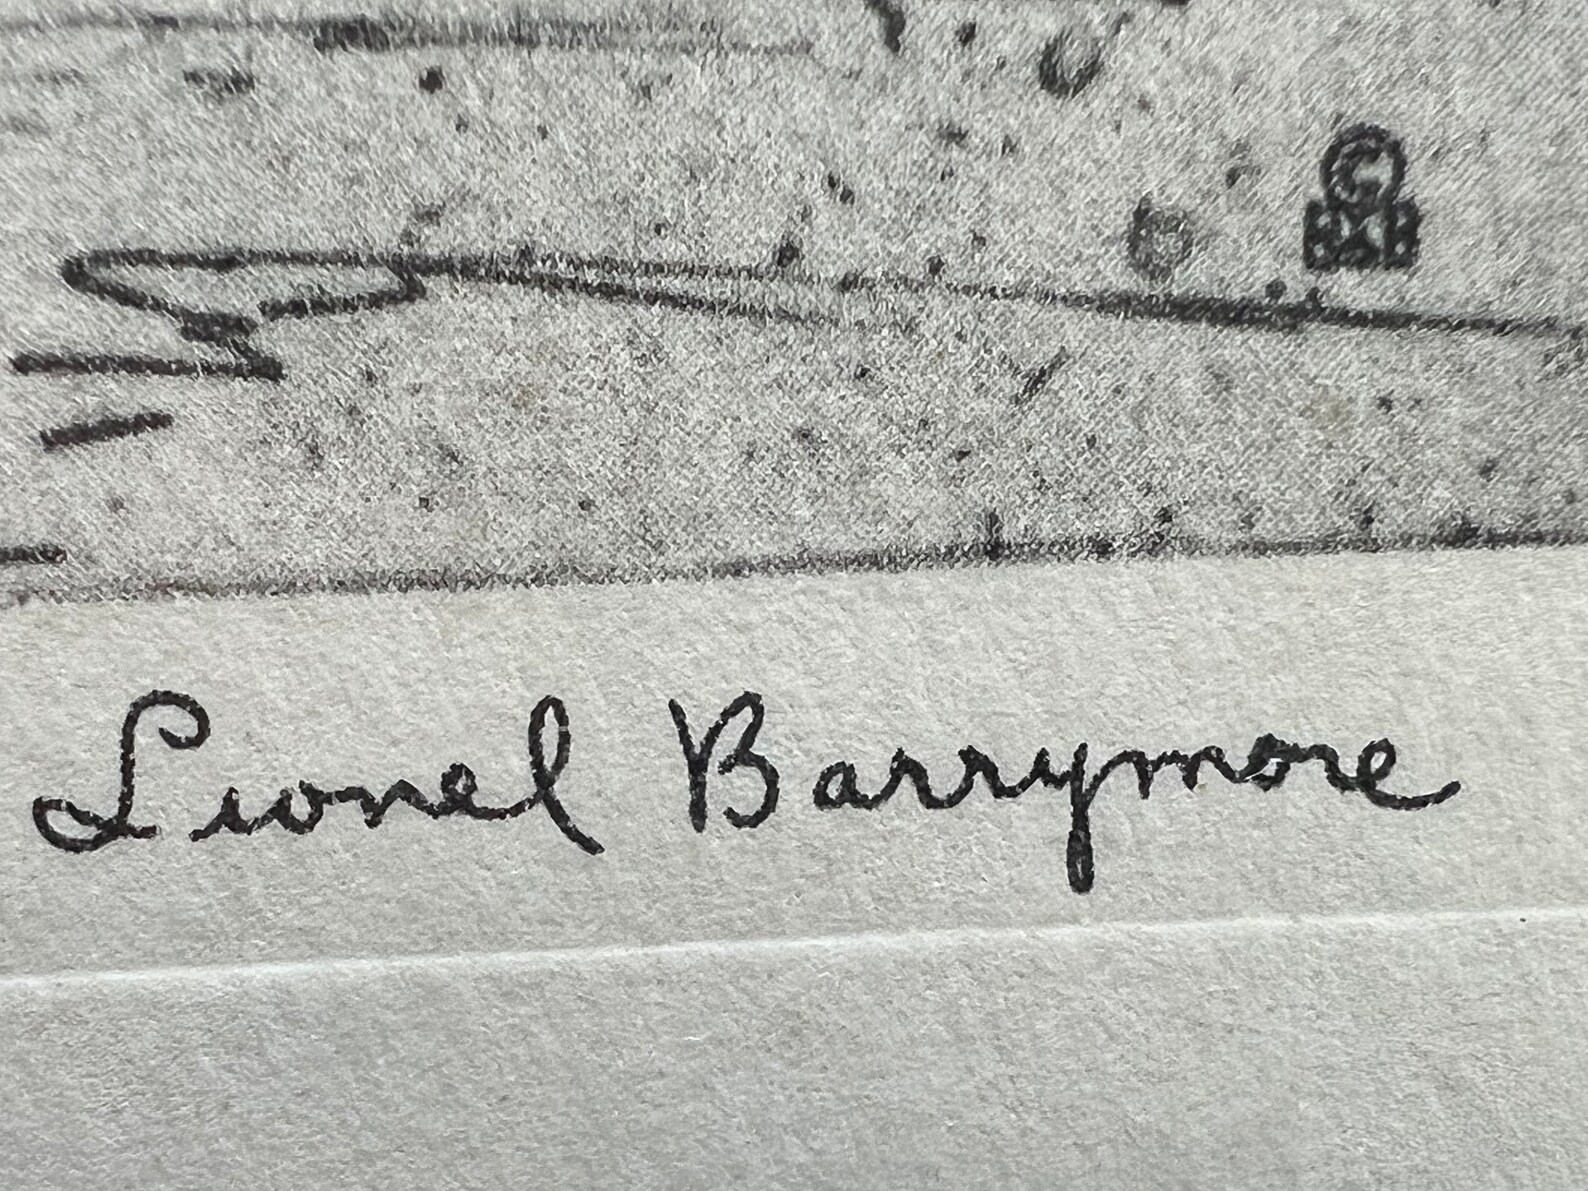 Lionel Barrymore